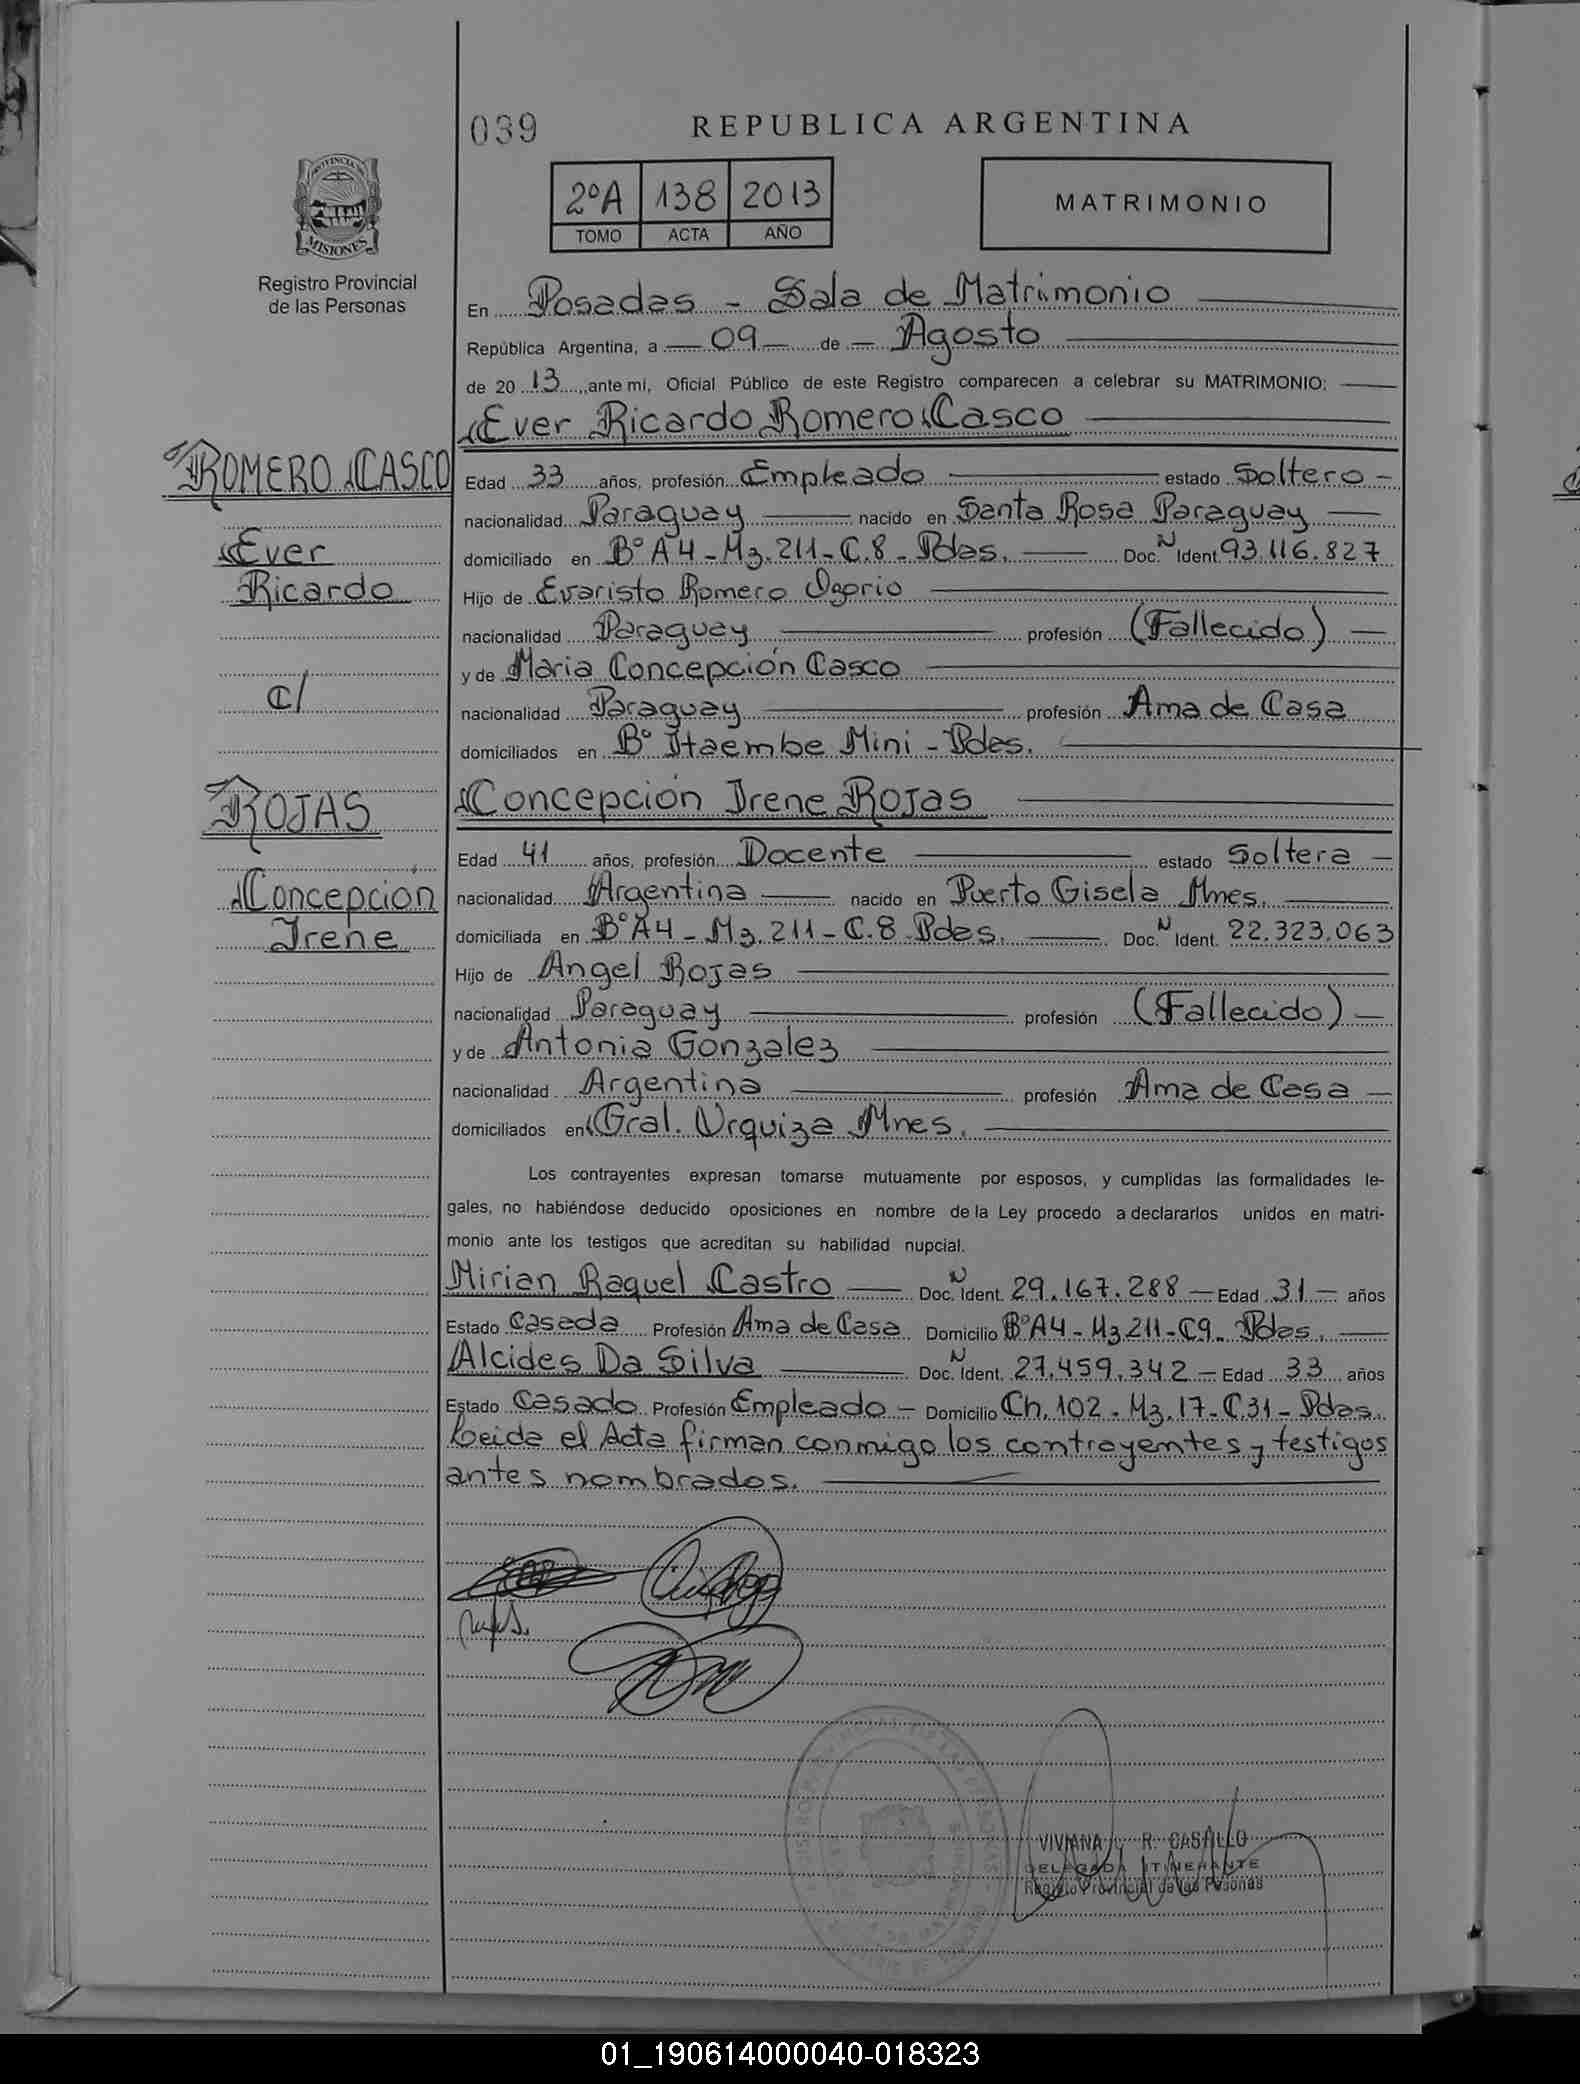 039
REPUBLICA ARGENTINA
PROVINCIA
MISIONES
2ºA 138 2013
TOMO ACTA AÑO
MATRIMONIO
Registro Provincial
de las Personas
En Posadas - Sala de Matrimonio
República Argentina, a 09 de Agosto
de 2013, ante mi, Oficial Público de este Registro comparecen a celebrar su MATRIMONIO:
Ever Ricardo Romero Casco
ROMERO CASCO
Ever
Ricardo
C/
ROJAS
Concepción
Irene
Edad 33 años, profesión Empleado estado Soltero -
nacionalidad Paraguay nacido en Santa Rosa Paraguay
domiciliado en Bº A4 - Mz. 211 - C.8 - Pdas. Doc. N Ident 93.116.827
Hijo de Evaristo Romero Osorio
nacionalidad Paraguay profesión (Fallecido)
y de Maria Concepción Casco
nacionalidad Paraguay profesión Ama de Casa
domiciliados en Bº Itaembe Mini - Pdas.
Concepción Irene Rojas
Edad 41 años, profesión Docente estado Soltera -
nacionalidad Argentina nacido en Puerto Gisela Mnes.
domiciliada en Bº A4 - Mz. 211 - C.8 Pdas. Doc. N Ident. 22.323.063
Hijo de Angel Rojas
nacionalidad Paraguay profesión (Fallecido) -
y de Antonia Gonzalez
nacionalidad Argentina profesión Ama de Casa -
domiciliados en Gral. Urquiza Mnes.
Los contrayentes expresan tomarse mutuamente por esposos, y cumplidas las formalidades le-
gales, no habiéndose deducido oposiciones en nombre de la Ley procedo a declararlos unidos en matri-
monio ante los testigos que acreditan su habilidad nupcial.
Mirian Raquel Castro Doc. N Ident. 29.167.288 - Edad 31 - años
Estado Casada Profesión Ama de Casa Domicilio Bº A4 - Mz 211 - C9 - Pdas.
Alcides Da Silva Doc. N Ident. 27.459.342 - Edad 33 años
Estado Casado Profesión Empleado - Domicilio Ch. 102 - Mz. 17 - C.31 - Pdas.
Leida el Acta firman conmigo los contrayentes y testigos
antes nombrados.
VIVIANA R. CASTILLO
DELEGADA ITINERANTE
Registro Provincial de las Personas
01_190614000040-018323